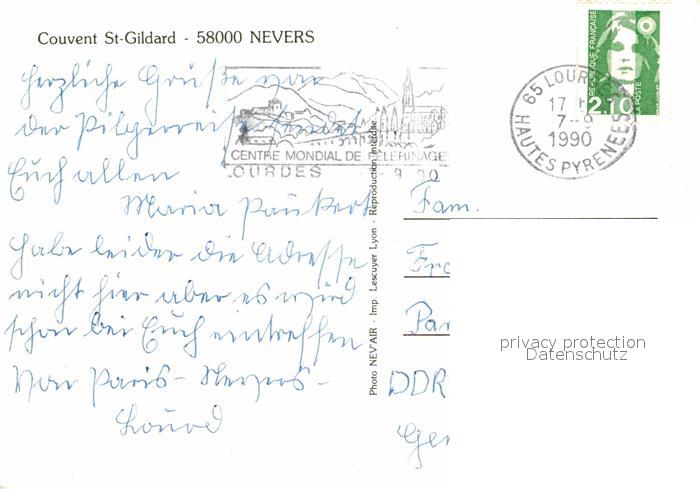 Couvent St-Gildard - 58000 NEVERS
Herzliche Grüße von
der Pilgerreise sendet
Euch allen
Maria Paukert
habe leider die Adresse
nicht hier aber es wird
schon bei Euch eintreffen
Von Paris - Nevers -
Lourd
CENTRE MONDIAL DE PELERINAGE
LOURDES
9 90
Photo NEV'AIR - Imp. Lescuyer Lyon - Reproduction interdite
RÉPUBLIQUE FRANÇAISE
LA POSTE
2,10
65 LOURDES
17 H
7-9
1990
HAUTES PYRENEES
Fam.
Fre
Par
DDR
Ger
privacy protection
Datenschutz